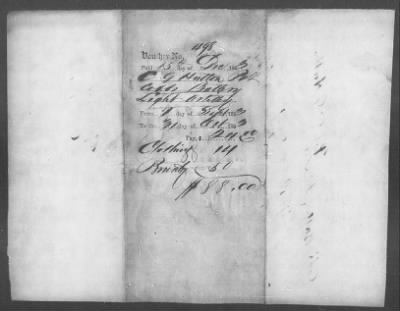 498
Voucher No.
Paid 15 day of Dec 1863
C G Hutton Pvt
Battery
Light Artillery
From 1 day of Sept 1863
To the 31 day of Oct 186
Pay, $ 24.00
Clothing 14
Bounty 50
$88.00